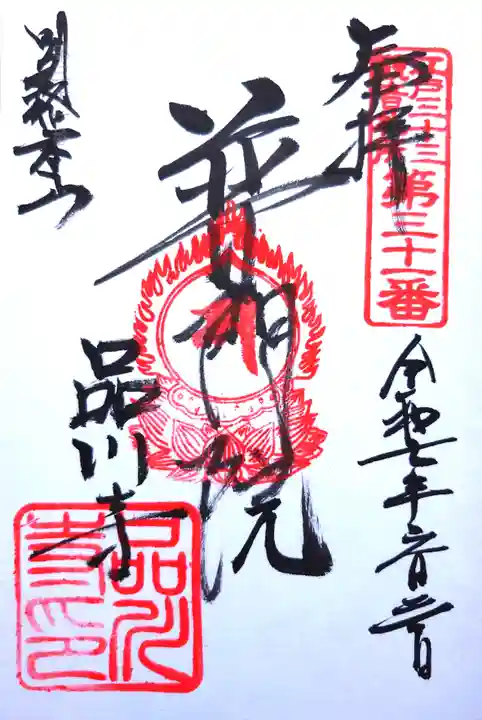 奉拝
江戸三十三
観音札所
第三十一番
普門院
令和七年六月
別格本山
品川寺
品川
寺印